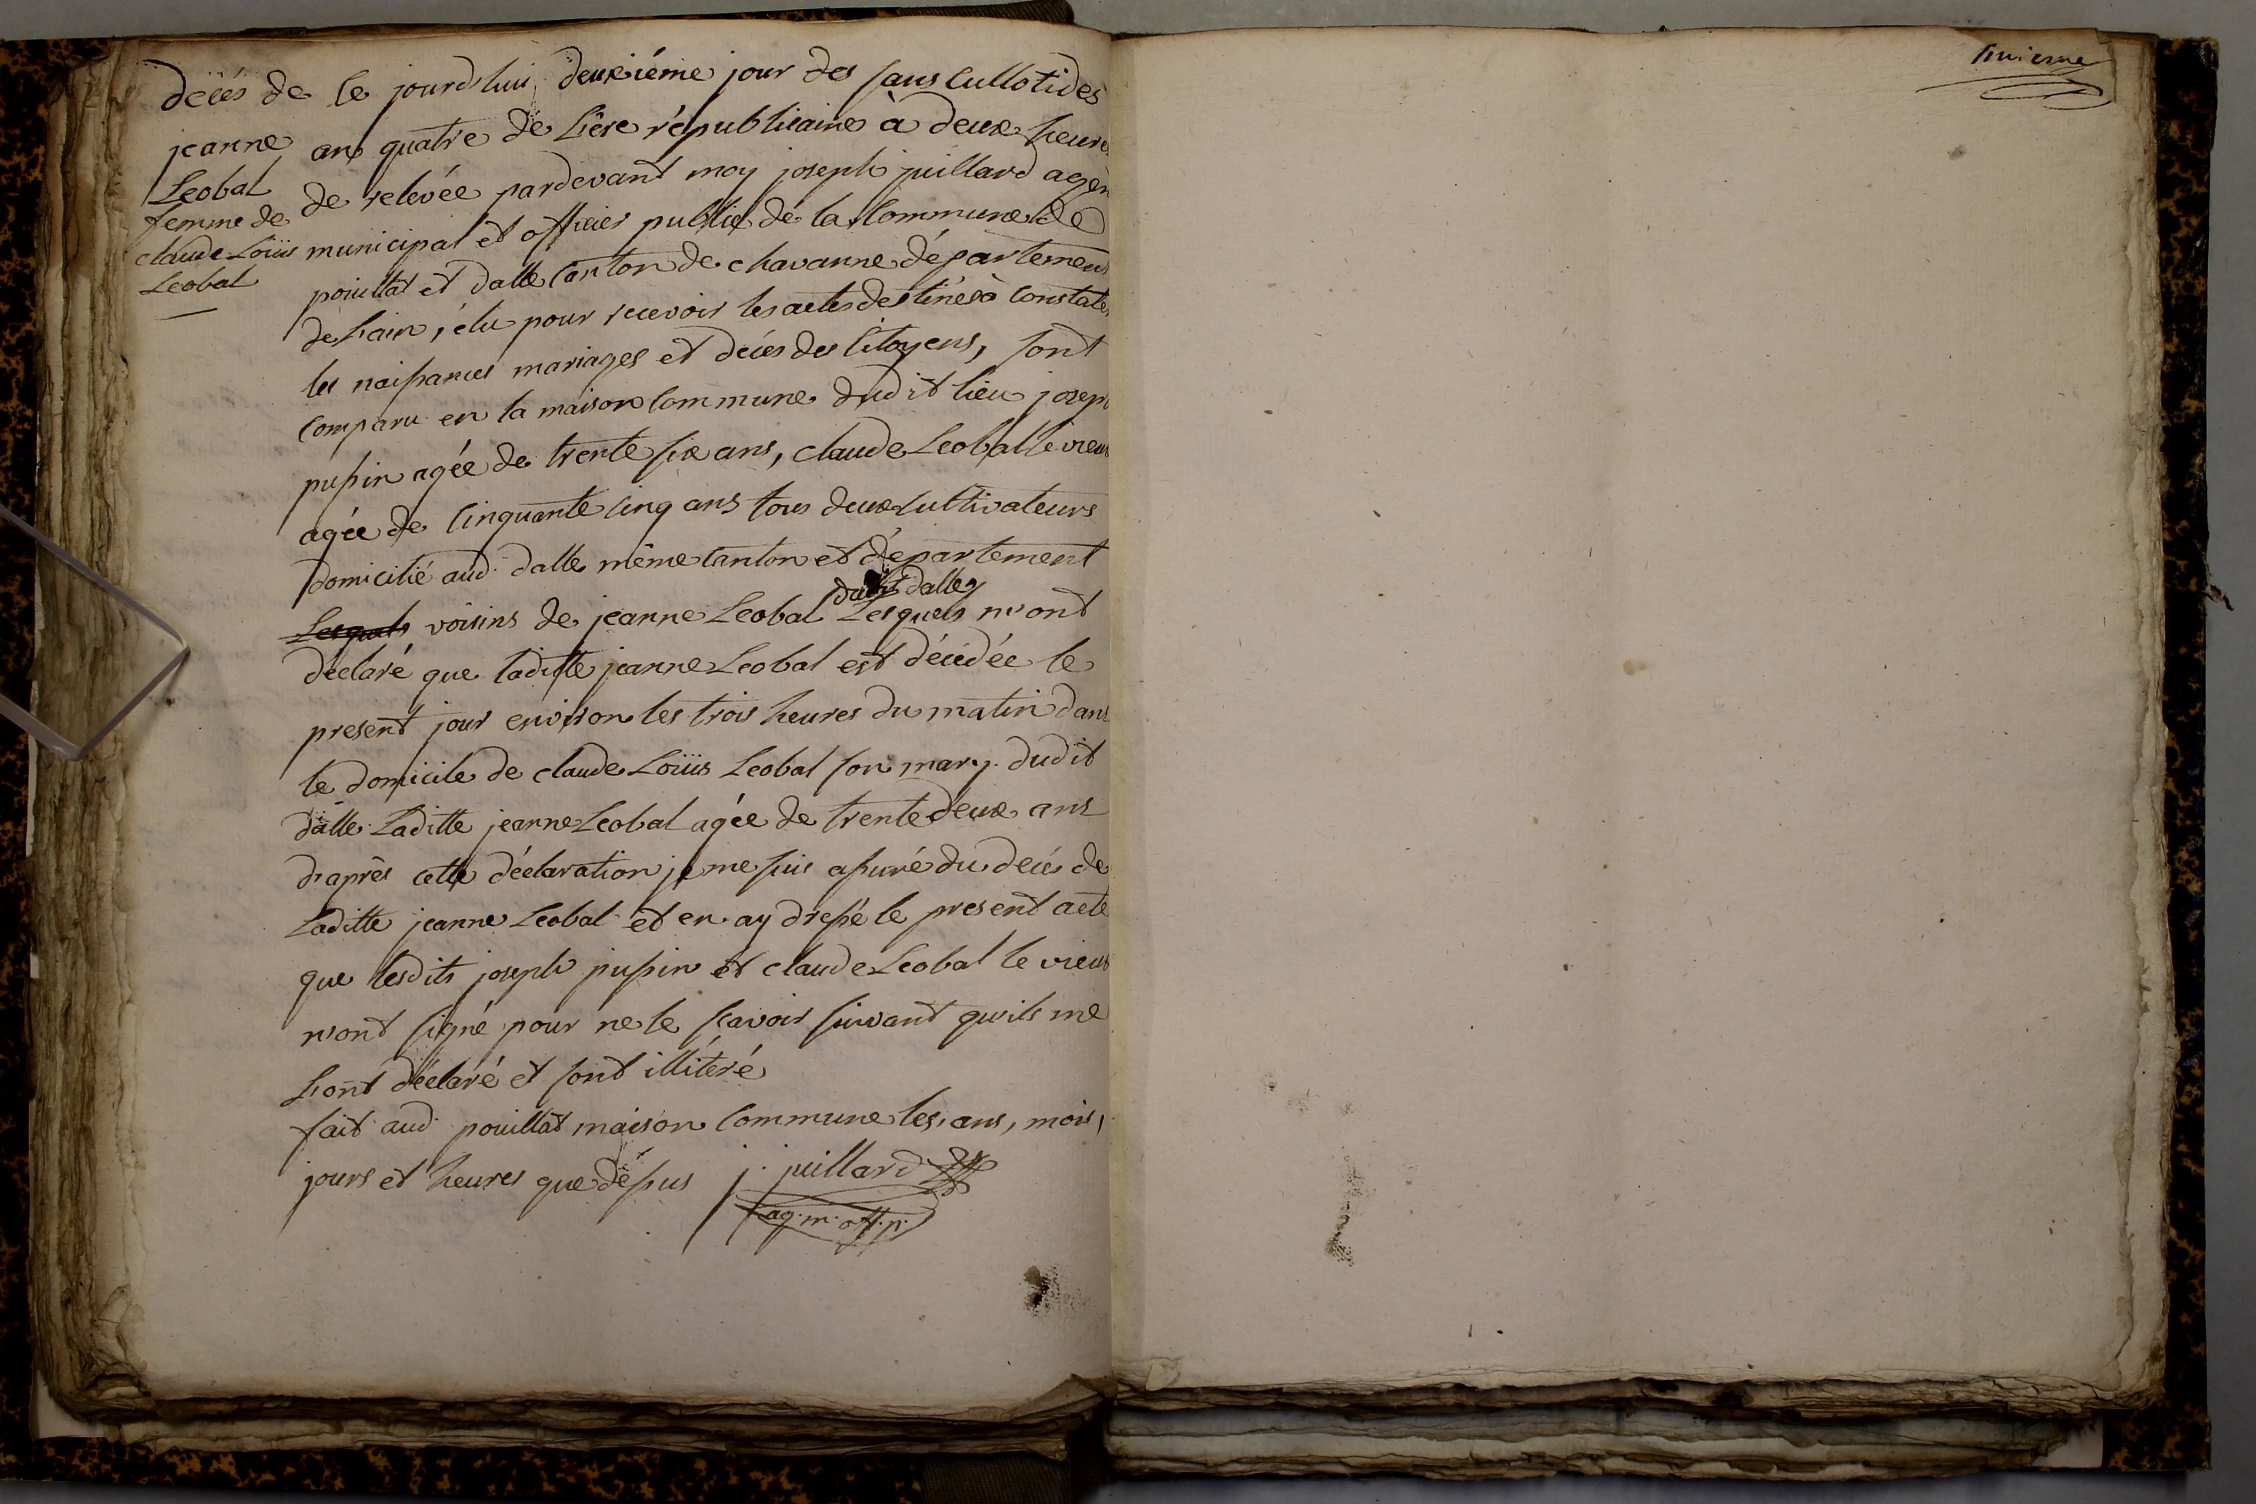 décés de
jeanne
Leobal
femme de
claude Loüis
Leobal
Ce jourd'hui deuxiéme jour des sans Cullotides
an quatre de L'ére républicaine à deux heure
de relevée pardevant moy joseph juillard agen
municipal et officier public de la Commune de
pouillat et dalle Canton de chavanne département
de L'ain, élu pour recevoir les actes destinés à Constater
les naissances mariages et décés des Citoyens, sont
Comparu en la maison Commune dudit lieu joseph
pussin agée de trente six ans, claude Leobal le vieux
agée de Cinquante Cinq ans tous deux Cultivateurs
domicilié aud. dalle même Canton et département
dudit dalle
Lesquels voisins de jeanne Leobal Lesquels m'ont
déclaré que laditte jeanne Leobal est décédée le
present jour environ les trois heures du matin dans
le domicile de claude Loüis Leobal son mary dudit
dalle Laditte jeanne Leobal agée de trente deux ans
d'après cette déclaration je me suis assuré du decés de
Laditte jeanne Leobal et en ay dressé le present acte
que lesdits joseph pussin et claude Leobal le vieux
n'ont signé pour ne le sçavoir suivant qu'ils me
L'ont déclaré et sont illitéré
fait aud. pouillat maison Commune les ans, mois,
jours et heures que dessus j. juillard
ag. m. off. p.
huiéme